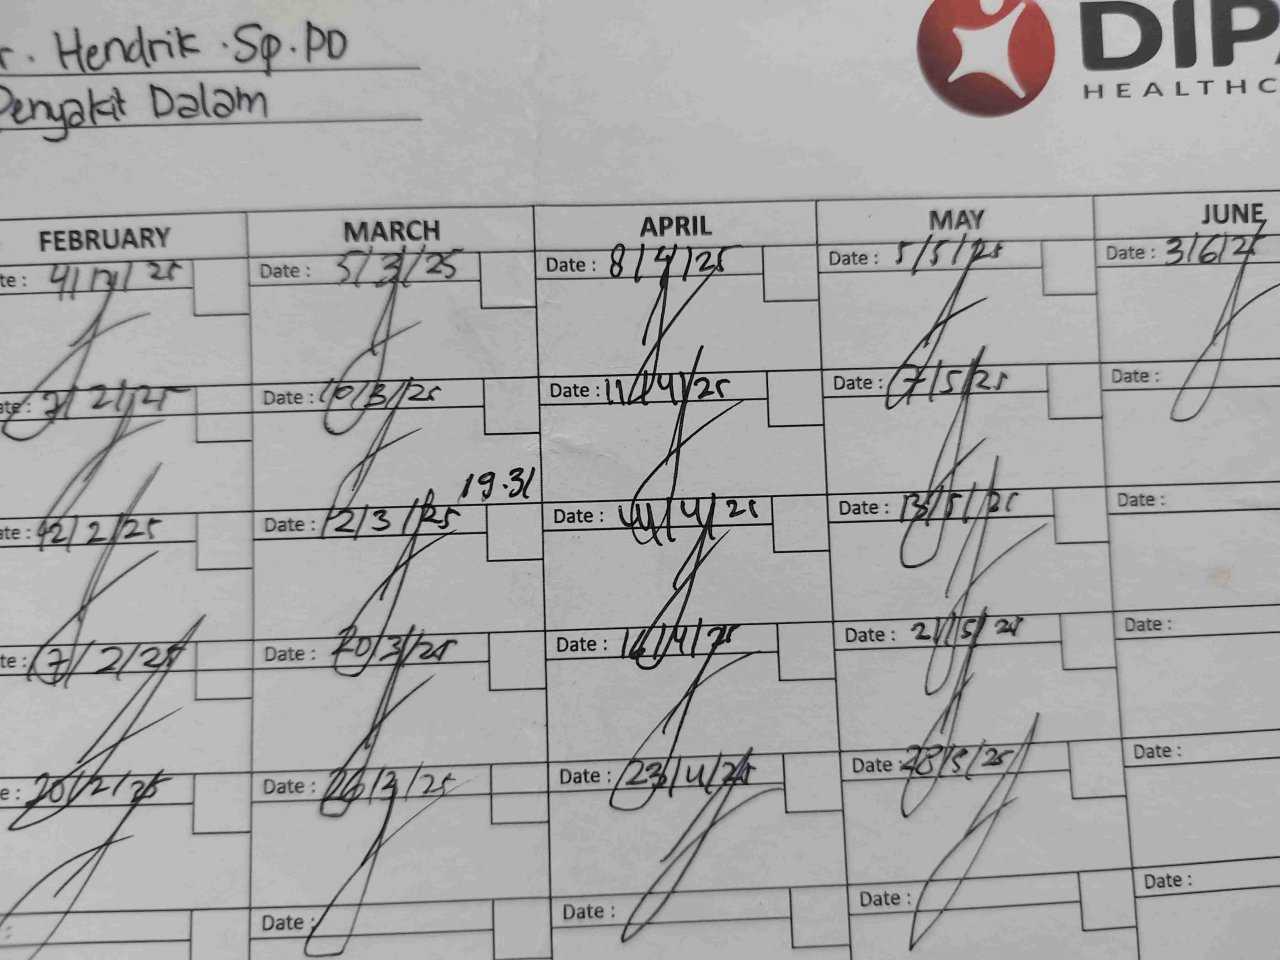 Hendrik . Sp. PD
Penyakit Dalam
HEALTHC
FEBRUARY MARCH APRIL MAY JUNE
4/2/25 Date : 5/3/25 Date : 8/4/25 Date : 5/5/25 Date : 3/6/25
7/2/25 Date : 10/3/25 Date : 11/4/25 Date : 7/5/25 Date :
19.31
12/2/25 Date : 12/3/25 Date : 14/4/25 Date : 13/5/25 Date :
17/2/25 Date : 20/3/25 Date : 16/4/25 Date : 21/5/25 Date :
20/2/25 Date : 26/3/25 Date : 23/4/25 Date : 28/5/25 Date :
Date : Date : Date : Date :